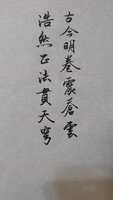 古今明卷震蒼雲
浩然正法貫天穹